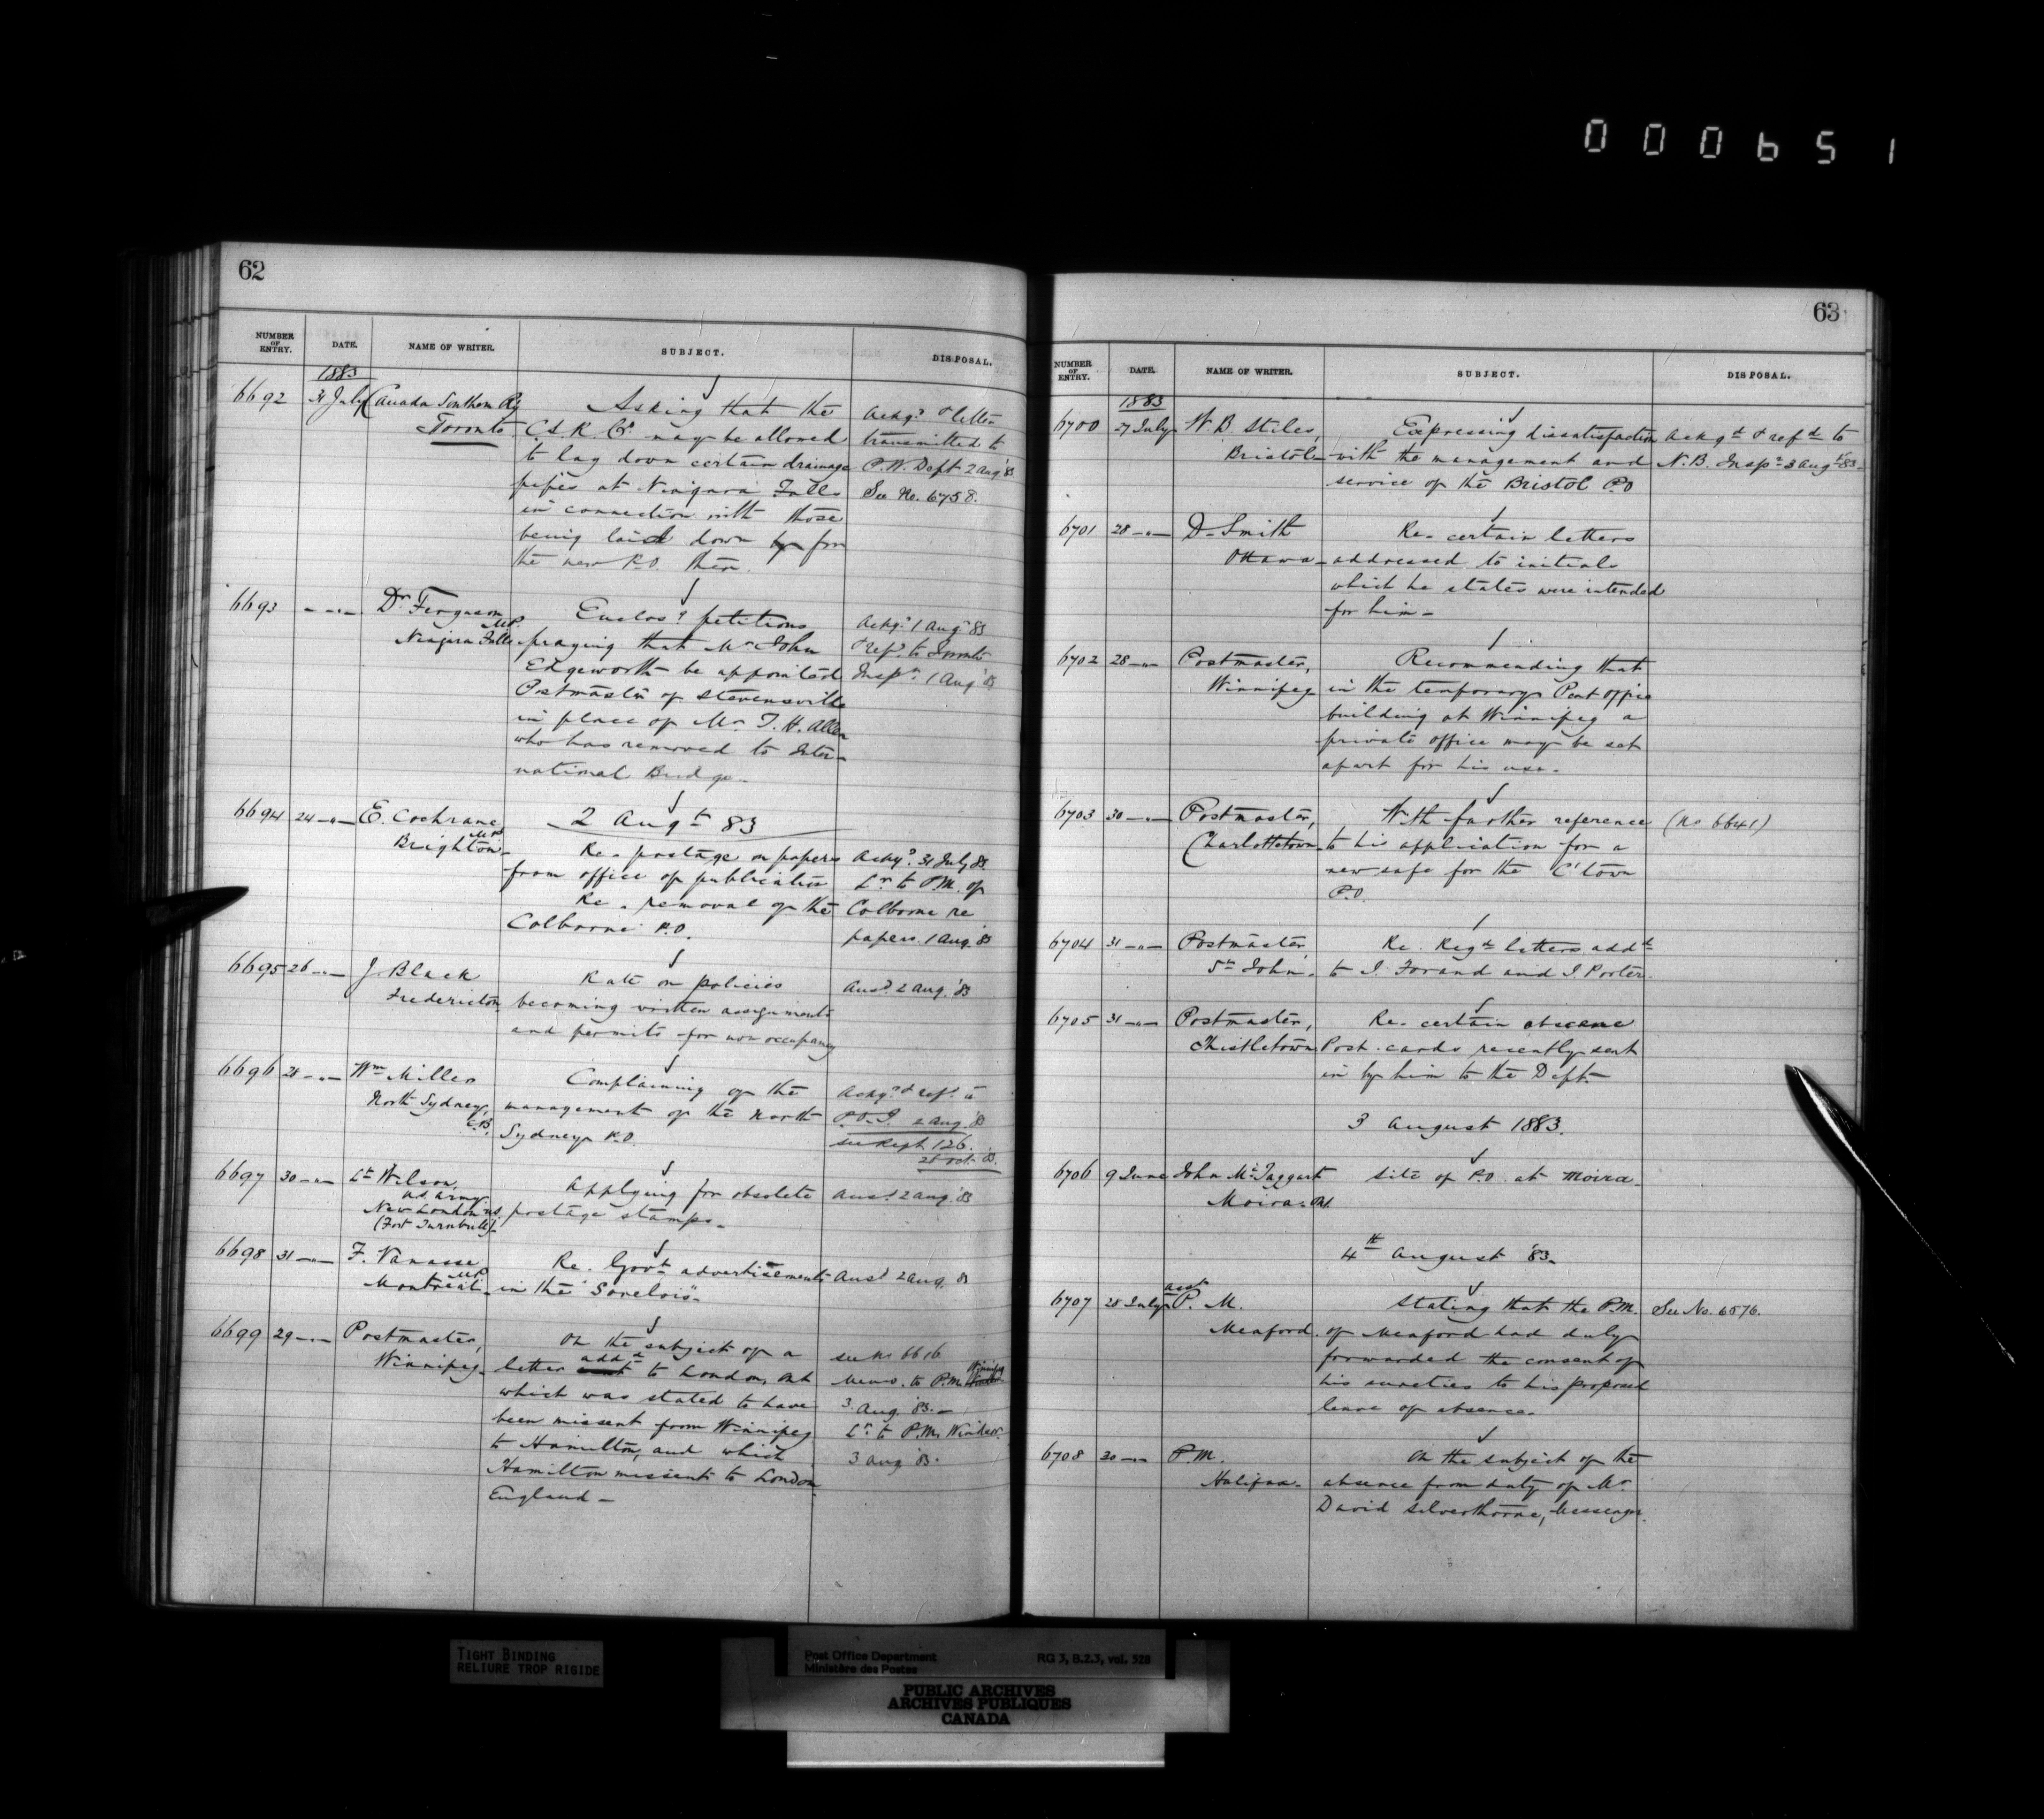 000651
62
NUMBER OF ENTRY. DATE. NAME OF WRITER. SUBJECT. DISPOSAL.
1883
6692 31 July Canada Southern Ry Asking that the Ackgd & letter
Toronto C.S.R. Co. may be allowed transmitted to
to lay down certain drainage P.W. Dept 2 Aug '83
pipes at Niagara Falls See No. 6758.
in connection with those
being laid down by for
the new P.O. there.
6693 - " - Dr Ferguson M.P. Enclosg petitions Ackgd 1 Aug '83
Niagara Falls praying that Mr John & refd to Toronto
Edgeworth be appointed Inspr 1 Aug '83
Postmaster of Stevensville
in place of Mr. T. H. Allen
who has removed to Inter-
national Bridge.
2 Augt 83
6694 24 - " - E. Cochrane M.P. Re. postage on papers Ackgd 31 July 83
Brighton from office of publication Lr to P.M. of
Re. removal of the Colborne re
Colborne P.O. papers. 1 Aug '83
6695 26 - " - J. Black Rate on policies Ansd 2 Aug. '83
Fredericton becoming written assignments
and permits for non occupancy
6696 28 - " - Wm Miller Complaining of the Ackgd & refd to
North Sydney, C.B. management of the North P.O.I. 2 Aug. '83
Sydney P.O. see Rept 126.
28 Oct. '83.
6697 30 - " - Lt Wilson, Applying for obsolete Ansd 2 Aug. '83
U.S. Army postage stamps.
New London U.S.
(Fort Turnbull)
6698 31 - " - F. Vanasse M.P. Re. Govt advertisements Ansd 2 Aug. 83
Montreal in the "Sorelois".
6699 29 - " - Postmaster, On the subject of a see No 6616
Winnipeg letter sent addd to London, Ont Memo. to P.M. Winnipeg
which was stated to have 3 Aug. '83. -
been missent from Winnipeg Lr to P.M. Windsor.
to Hamilton, and which 3 Aug '83.
Hamilton missent to London
England -
63
NUMBER OF ENTRY. DATE. NAME OF WRITER. SUBJECT. DISPOSAL.
1883
6700 27 July W. B. Stiles, Expressing dissatisfaction Ackgd & refd to
Bristol with the management and N.B. Inspr 3 Augt '83
service of the Bristol P.O
6701 28 - " - D. Smith Re. certain letters
Ottawa addressed to initials
which he states were intended
for him -
6702 28 - " - Postmaster, Recommending that
Winnipeg in the temporary Post Office
building at Winnipeg a
private office may be set
apart for his use.
6703 30 - " - Postmaster, With further reference (No 6641)
Charlottetown to his application for a
new safe for the C'town
P.O.
6704 31 - " - Postmaster, Re. Regd letters addd
St John. to I. Forand and I. Porter.
6705 31 - " - Postmaster, Re. certain obscene
Thistletown Post cards recently sent
in by him to the Dept.
3 August 1883.
6706 9 June John McTaggart Site of P.O. at Moira.
Moira. Ont.
4th August '83.
6707 28 July asst P. M. Stating that the P.M. See No. 6576.
Meaford. of Meaford had duly
forwarded the consent of
his sureties to his proposed
leave of absence.
6708 30 - " - P.M. On the subject of the
Halifax. absence from duty of Mr.
David Silverthorne, Messenger.
TIGHT BINDING
RELIURE TROP RIGIDE
Post Office Department RG 3, B.2.3, vol. 528
Ministère des Postes
PUBLIC ARCHIVES
ARCHIVES PUBLIQUES
CANADA